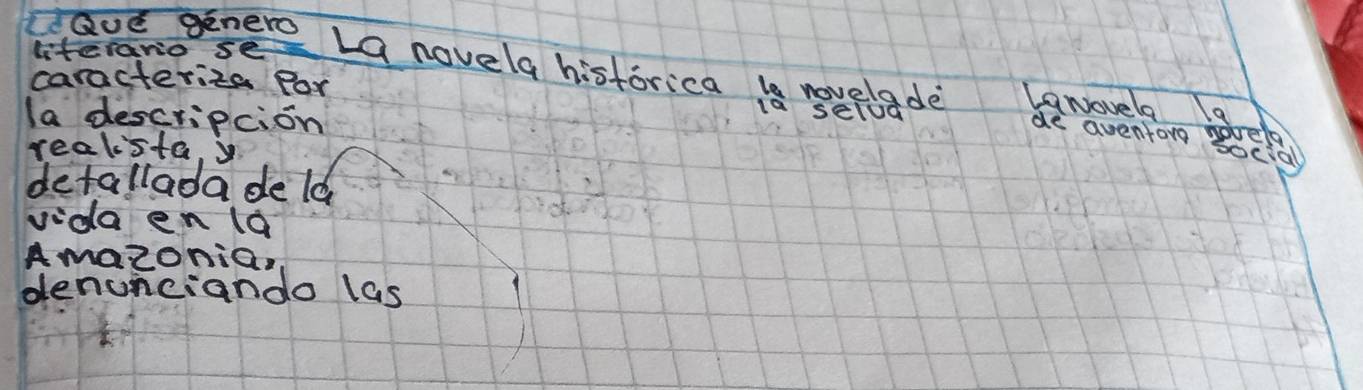 ¿Qué género
literario se
caracteriza por
la descripción
realista, y
detallada de la
vida en la
Amazonia,
denunciando las
La novela histórica
la novela de
la selva
La novela
de aventora
la
novela
social